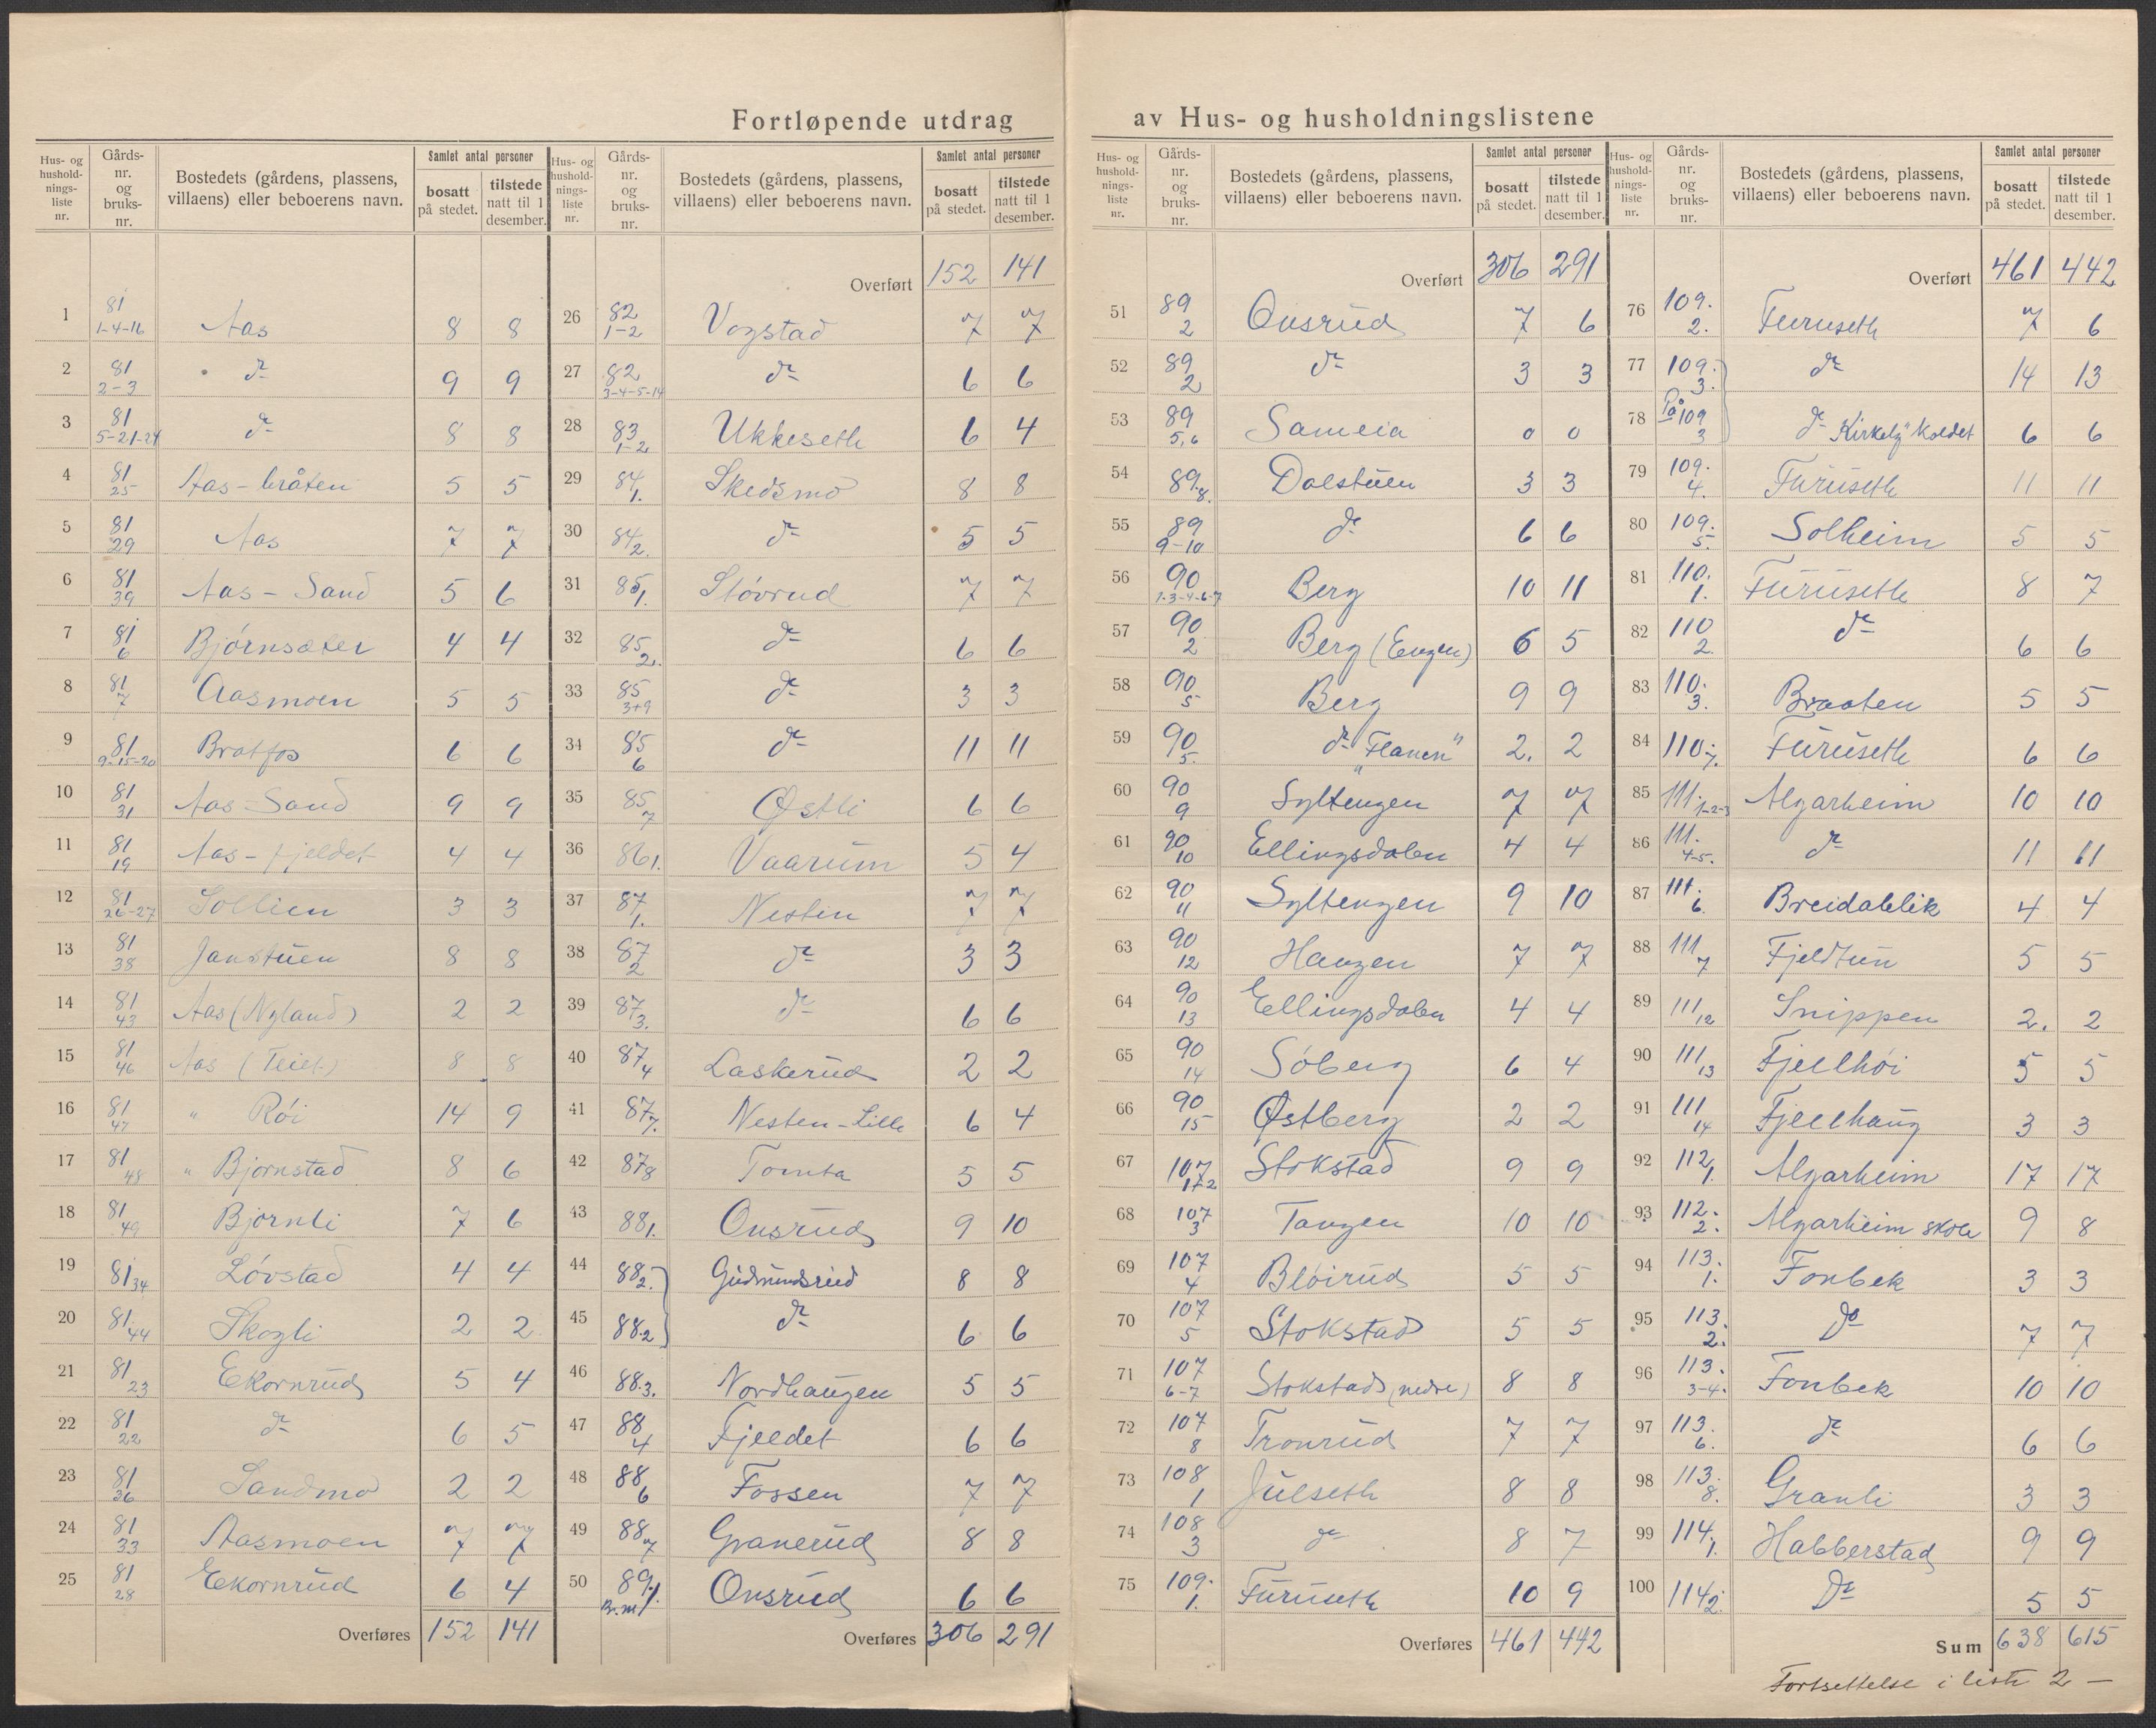 Fortløpende utdrag av Hus- og husholdningslistene
Hus- og hushold-nings-liste nr. | Gårds-nr. og bruks-nr. | Bostedets (gårdens, plassens, villaens) eller beboerens navn. | Samlet antal personer | bosatt på stedet. | tilstede natt til 1 desember.
1 | 81 1-4-16 | Aas | 8 | 8
2 | 81 2-3 | do | 9 | 9
3 | 81 5-21-24 | do | 8 | 8
4 | 81 25 | Aas-bråten | 5 | 5
5 | 81 29 | Aas | 7 | 7
6 | 81 39 | Aas - Sand | 5 | 6
7 | 81 6 | Bjørnsæter | 4 | 4
8 | 81 7 | Aasmoen | 5 | 5
9 | 81 9-15-20 | Bratfos | 6 | 6
10 | 81 31 | Aas-Sand | 9 | 9
11 | 81 19 | Aas-fjeldet | 4 | 4
12 | 81 26-27 | Sollien | 3 | 3
13 | 81 38 | Janstuen | 8 | 8
14 | 81 43 | Aas (Nyland) | 2 | 2
15 | 81 46 | Aas | 8 | 8
16 | 81 47 | " Røi | 14 | 9
17 | 81 48 | " Bjørnstad | 8 | 6
18 | 81 49 | Bjørnli | 7 | 6
19 | 81 34 | Løvstad | 4 | 4
20 | 81 44 | Skogli | 2 | 2
21 | 81 23 | Ekornrud | 5 | 4
22 | 81 22 | do | 6 | 5
23 | 81 36 | Sandmo | 2 | 2
24 | 81 33 | Aasmoen | 7 | 7
25 | 81 28 | Ekornrud | 6 | 4
Overføres | 152 | 141
Hus- og hushold-nings-liste nr. | Gårds-nr. og bruks-nr. | Bostedets (gårdens, plassens, villaens) eller beboerens navn. | Samlet antal personer | bosatt på stedet. | tilstede natt til 1 desember.
Overført | 152 | 141
26 | 82 1-2 | Vogstad | 7 | 7
27 | 82 3-4-5-14 | do | 6 | 6
28 | 83 1-2 | Ukkeseth | 6 | 4
29 | 84 1. | Skedsmo | 8 | 8
30 | 84 2. | do | 5 | 5
31 | 85 1. | Støvrud | 7 | 7
32 | 85 2. | do | 6 | 6
33 | 85 3+9 | do | 3 | 3
34 | 85 6 | do | 11 | 11
35 | 85 7 | Østli | 6 | 6
36 | 86 1. | Vaarum | 5 | 4
37 | 87 1. | Nesten | 7 | 7
38 | 87 2 | do | 3 | 3
39 | 87 3. | do | 6 | 6
40 | 87 4 | Laskerud | 2 | 2
41 | 87 7. | Nesten-Lille | 6 | 4
42 | 87 8 | Tomta | 5 | 5
43 | 88 1. | Onsrud | 9 | 10
44 | 88 2. | Gudmundsrud | 8 | 8
45 | 88.2 | do | 6 | 6
46 | 88.3. | Nordhaugen | 5 | 5
47 | 88 4 | Fjeldet | 6 | 6
48 | 88 6 | Fossen | 7 | 7
49 | 88 7 | Granerud | 8 | 8
50 | 89 1. | Onsrud | 6 | 6
Overføres | 306 | 291
Hus- og hushold-nings-liste nr. | Gårds-nr. og bruks-nr. | Bostedets (gårdens, plassens, villaens) eller beboerens navn. | Samlet antal personer | bosatt på stedet. | tilstede natt til 1 desember.
Overført | 306 | 291
51 | 89 2 | Onsrud | 7 | 6
52 | 89 2 | do | 3 | 3
53 | 89 5,6 | Sameia | 0 | 0
54 | 89.8. | Dalstuen | 3 | 3
55 | 89 9-10 | do | 6 | 6
56 | 90 1-3-4-6-7 | Berg | 10 | 11
57 | 90 2 | Berg (Engen) | 6 | 5
58 | 90 5 | Berg | 9 | 9
59 | 90 5. | do "Flauen" | 2. | 2
60 | 90 9 | Syltengen | 7 | 7
61 | 90 10 | Ellingsdalen | 4 | 4
62 | 90 11 | Syltengen | 9 | 10
63 | 90 12 | Haugen | 7 | 7
64 | 90 13 | Ellingsdalen | 4 | 4
65 | 90 14 | Søberg | 6 | 4
66 | 90 15 | Østberg | 2 | 2
67 | 107 1+2 | Stokstad | 9 | 9
68 | 107 3 | Tangen | 10 | 10
69 | 107 4 | Bløirud | 5 | 5
70 | 107 5 | Stokstad | 5 | 5
71 | 107 6-7 | Stokstad (nedre) | 8 | 8
72 | 107 8 | Tronrud | 7 | 7
73 | 108 1 | Julseth | 8 | 8
74 | 108 3 | do | 8 | 7
75 | 109. 1. | Furuseth | 10 | 9
Overføres | 461 | 442
Hus- og hushold-nings-liste nr. | Gårds-nr. og bruks-nr. | Bostedets (gårdens, plassens, villaens) eller beboerens navn. | Samlet antal personer | bosatt på stedet. | tilstede natt til 1 desember.
Overført | 461 | 442
76 | 109. 2. | Furuseth | 7 | 6
77 | 109. 3. | do | 14 | 13
78 | På 109 3 | do | 6 | 6
79 | 109. 4. | Furuseth | 11 | 11
80 | 109. 5. | Solheim | 5 | 5
81 | 110. 1. | Furuseth | 8 | 7
82 | 110 2. | do | 6 | 6
83 | 110. 3. | Braaten | 5 | 5
84 | 110. 7. | Furuseth | 6 | 6
85 | 111. 1-2-3 | Algarheim | 10 | 10
86 | 111. 4-5. | do | 11 | 11
87 | 111. 6. | Breidablik | 4 | 4
88 | 111 7 | Fjeldtun | 5 | 5
89 | 111 12 | Snippen | 2. | 2
90 | 111 13 | Fjellhøi | 5 | 5
91 | 111 14 | Fjellhaug | 3 | 3
92 | 112 1. | Algarheim | 17 | 17
93 | 112. 2. | Algarheim skole | 9 | 8
94 | 113. 1. | Fonbek | 3 | 3
95 | 113. 2. | do | 7 | 7
96 | 113. 3-4. | Fonbek | 10 | 10
97 | 113. 6. | do | 6 | 6
98 | 113. 8. | Granli | 3 | 3
99 | 114. 1. | Habberstad | 9 | 9
100 | 114 2. | do | 5 | 5
Sum | 638 | 615
Fortsettelse i liste 2 —